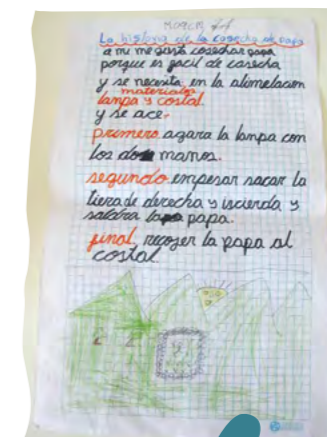 La historia de la cosecha de papa
a mi me gusta cosechar papa
porque es facil de casecha
y se necesita en la alimelacion
materiales
lanpa y costal.
y se ace.
primero agara la lanpa con
los dos manos.
segundo empesar sacar la
tiera de derecha y iscierda y
saldra la papa.
final, recojer la papa al
costal